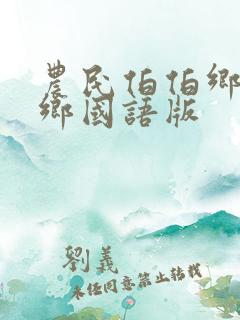 農民伯伯鄉
鄉國語版
劉義
未經同意禁止轉載